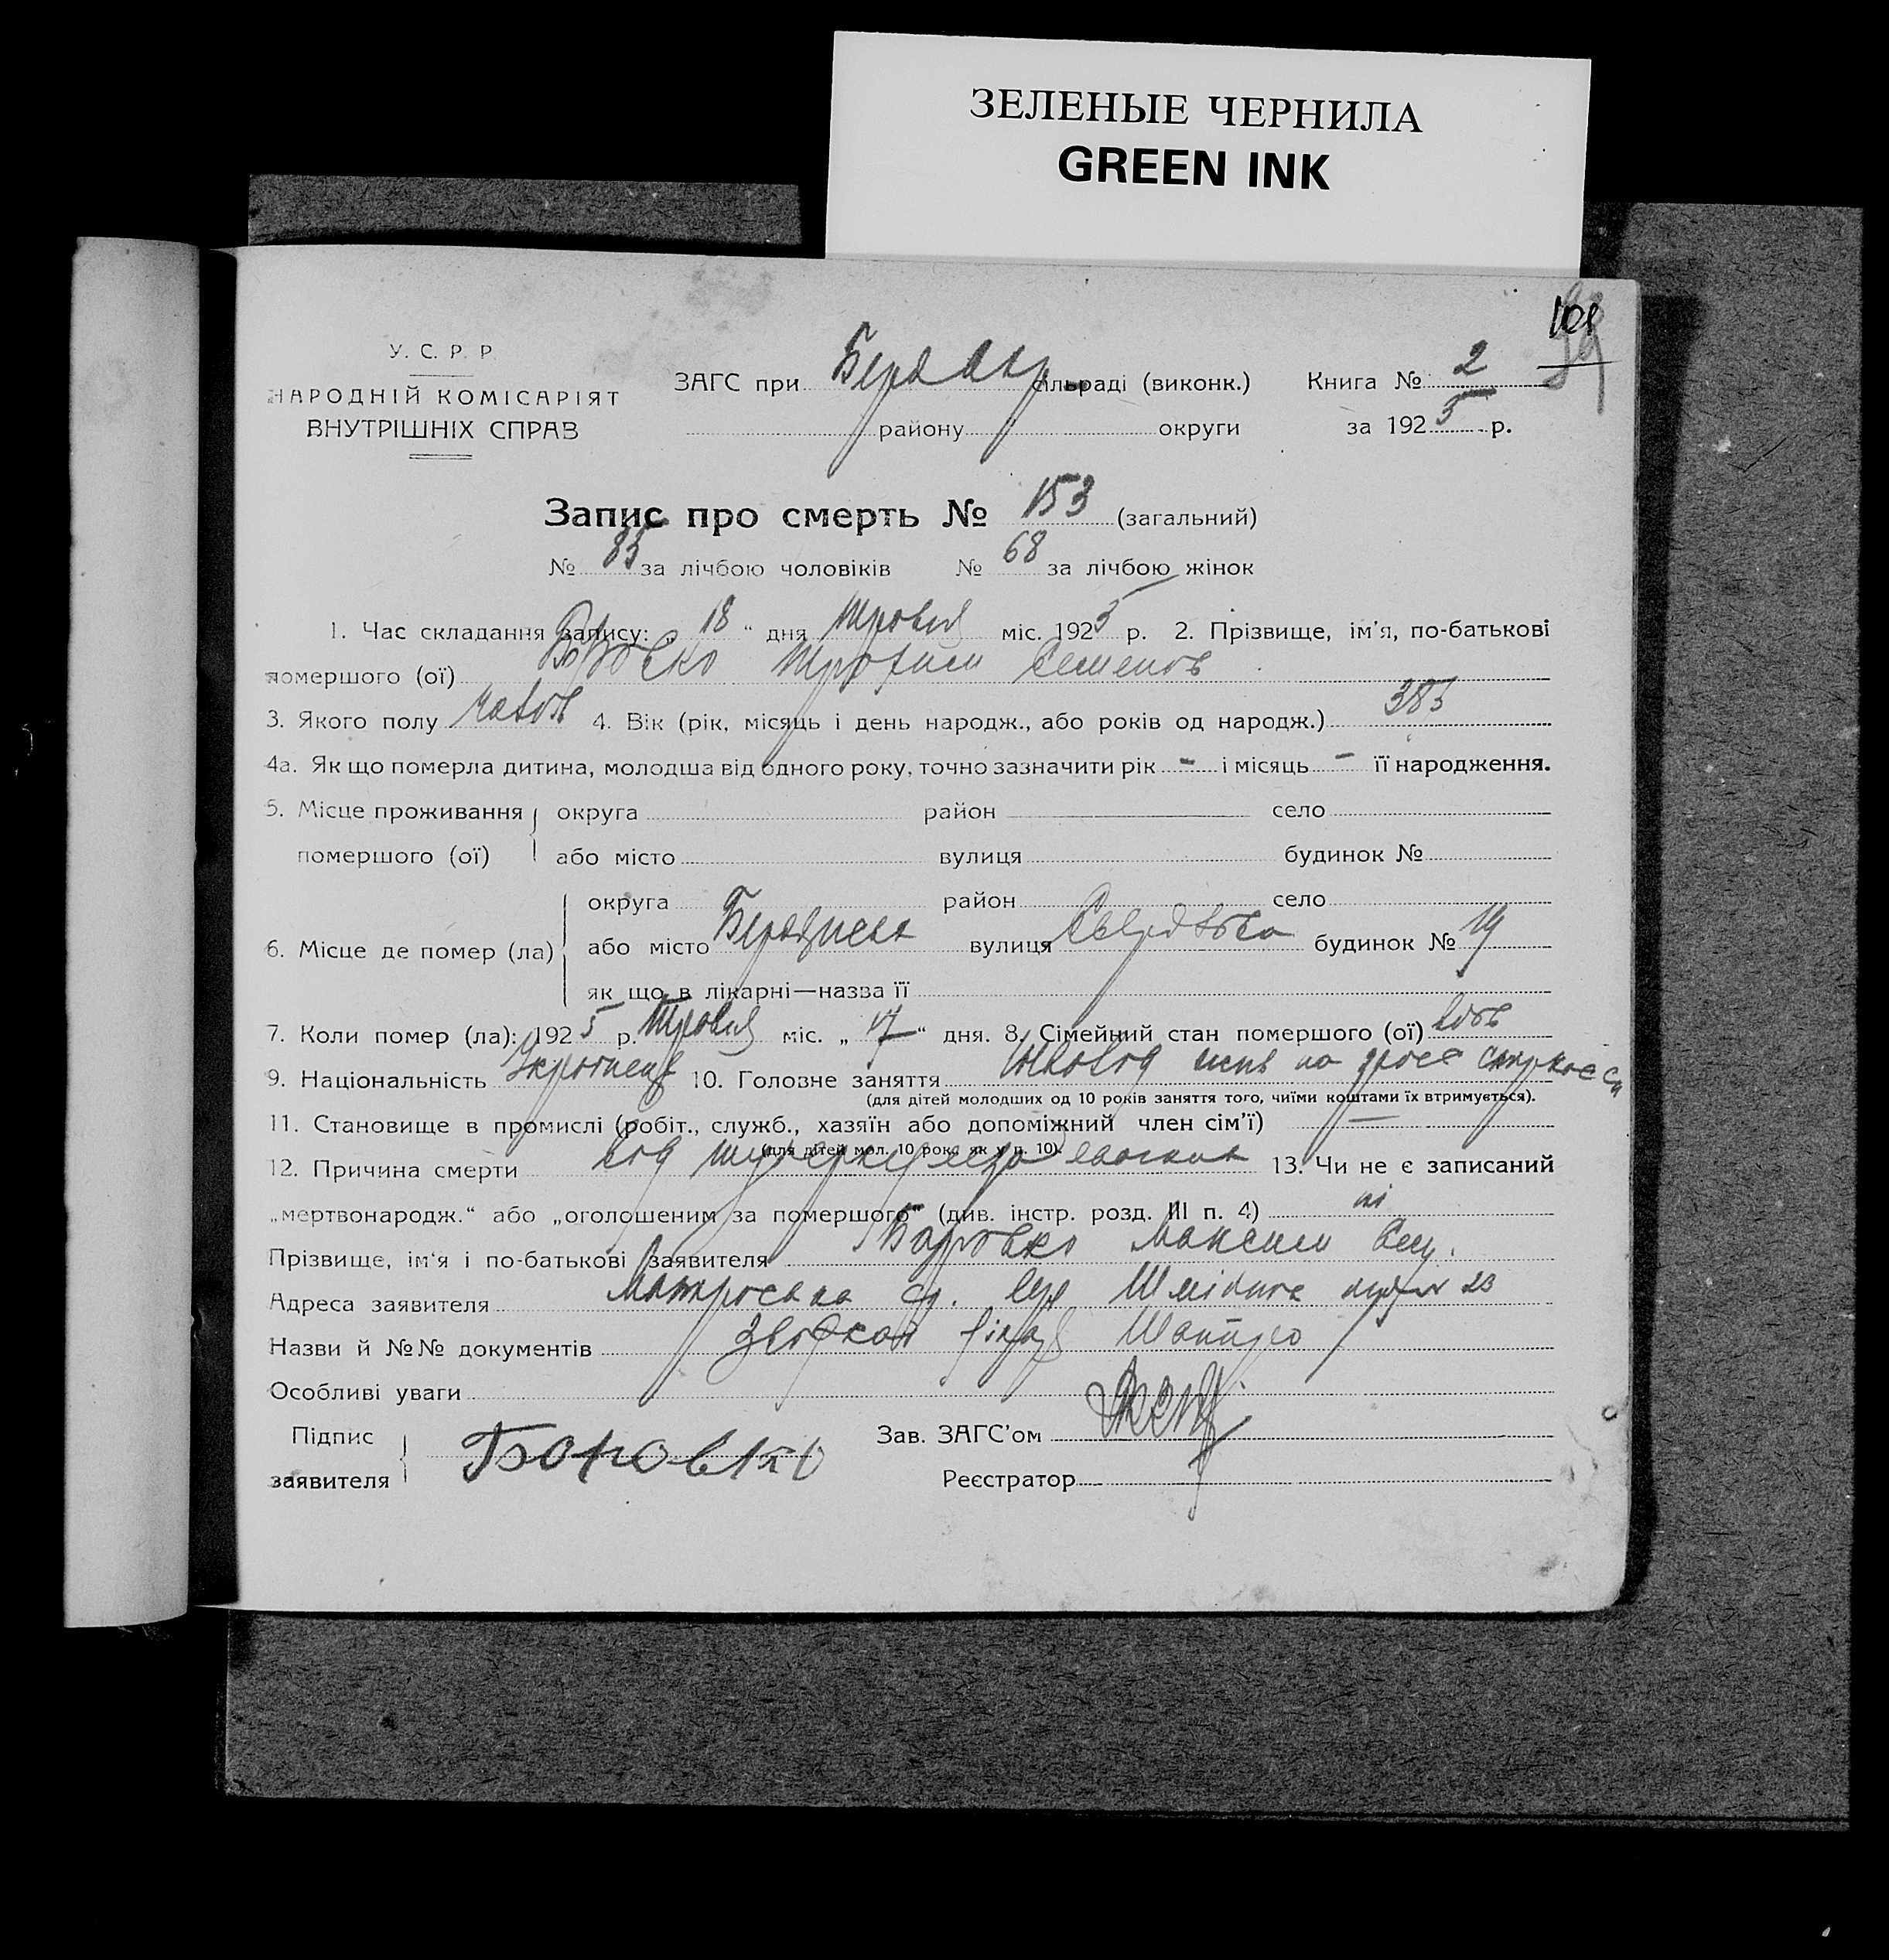 ЗЕЛЕНЫЕ ЧЕРНИЛА
GREEN INK
101
У. С. Р. Р.
НАРОДНІЙ КОМІСАРІЯТ
ВНУТРІШНІХ СПРАВ
ЗАГС при сільраді (виконк.) Книга № 2
району округи за 1925 р.
Запис про смерть № 153 (загальний)
№ 85 за лічбою чоловіків № 68 за лічбою жінок
1. Час складання запису: „ 18 “ дня Травня міс. 1925 р. 2. Прізвище, ім’я, по-батькові
помершого (ої) Семенов
3. Якого полу чолов 4. Вік (рік, місяць і день народж., або років од народж.)
4а. Як що померла дитина, молодша від одного року, точно зазначити рік - і місяць - її народження.
5. Місце проживання округа район село
помершого (ої) або місто вулиця будинок №
округа район село
6. Місце де помер (ла) або місто вулиця будинок № 19
як що в лікарні—назва її
7. Коли помер (ла): 1925 р. Травня міс. „ 17 “ дня. 8. Сімейний стан помершого (ої)
9. Національність Українець 10. Головне заняття
(для дітей молодших од 10 років заняття того, чиїми коштами їх втримується).
11. Становище в промислі (робіт., служб., хазяїн або допоміжний член сім’ї) —
(для дітей мол. 10 рокз як у п. 10).
12. Причина смерти од туберкульоза 13. Чи не є записаний
„мертвонародж.“ або „оголошеним за помершого“ (див. інстр. розд. III п. 4) ні
Прізвище, ім‘я і по-батькові заявителя Боровко Максим Сем.
Адреса заявителя Матроська сл. вул Шмідта 23
Назви й №№ документів Шапіро
Особливі уваги
Підпис
заявителя Боровко
Зав. ЗАГС’ом
Реєстратор